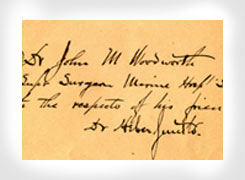 Dr John M Woodworth
Surgeon Marine Hosp S
the respects of his frien
Dr